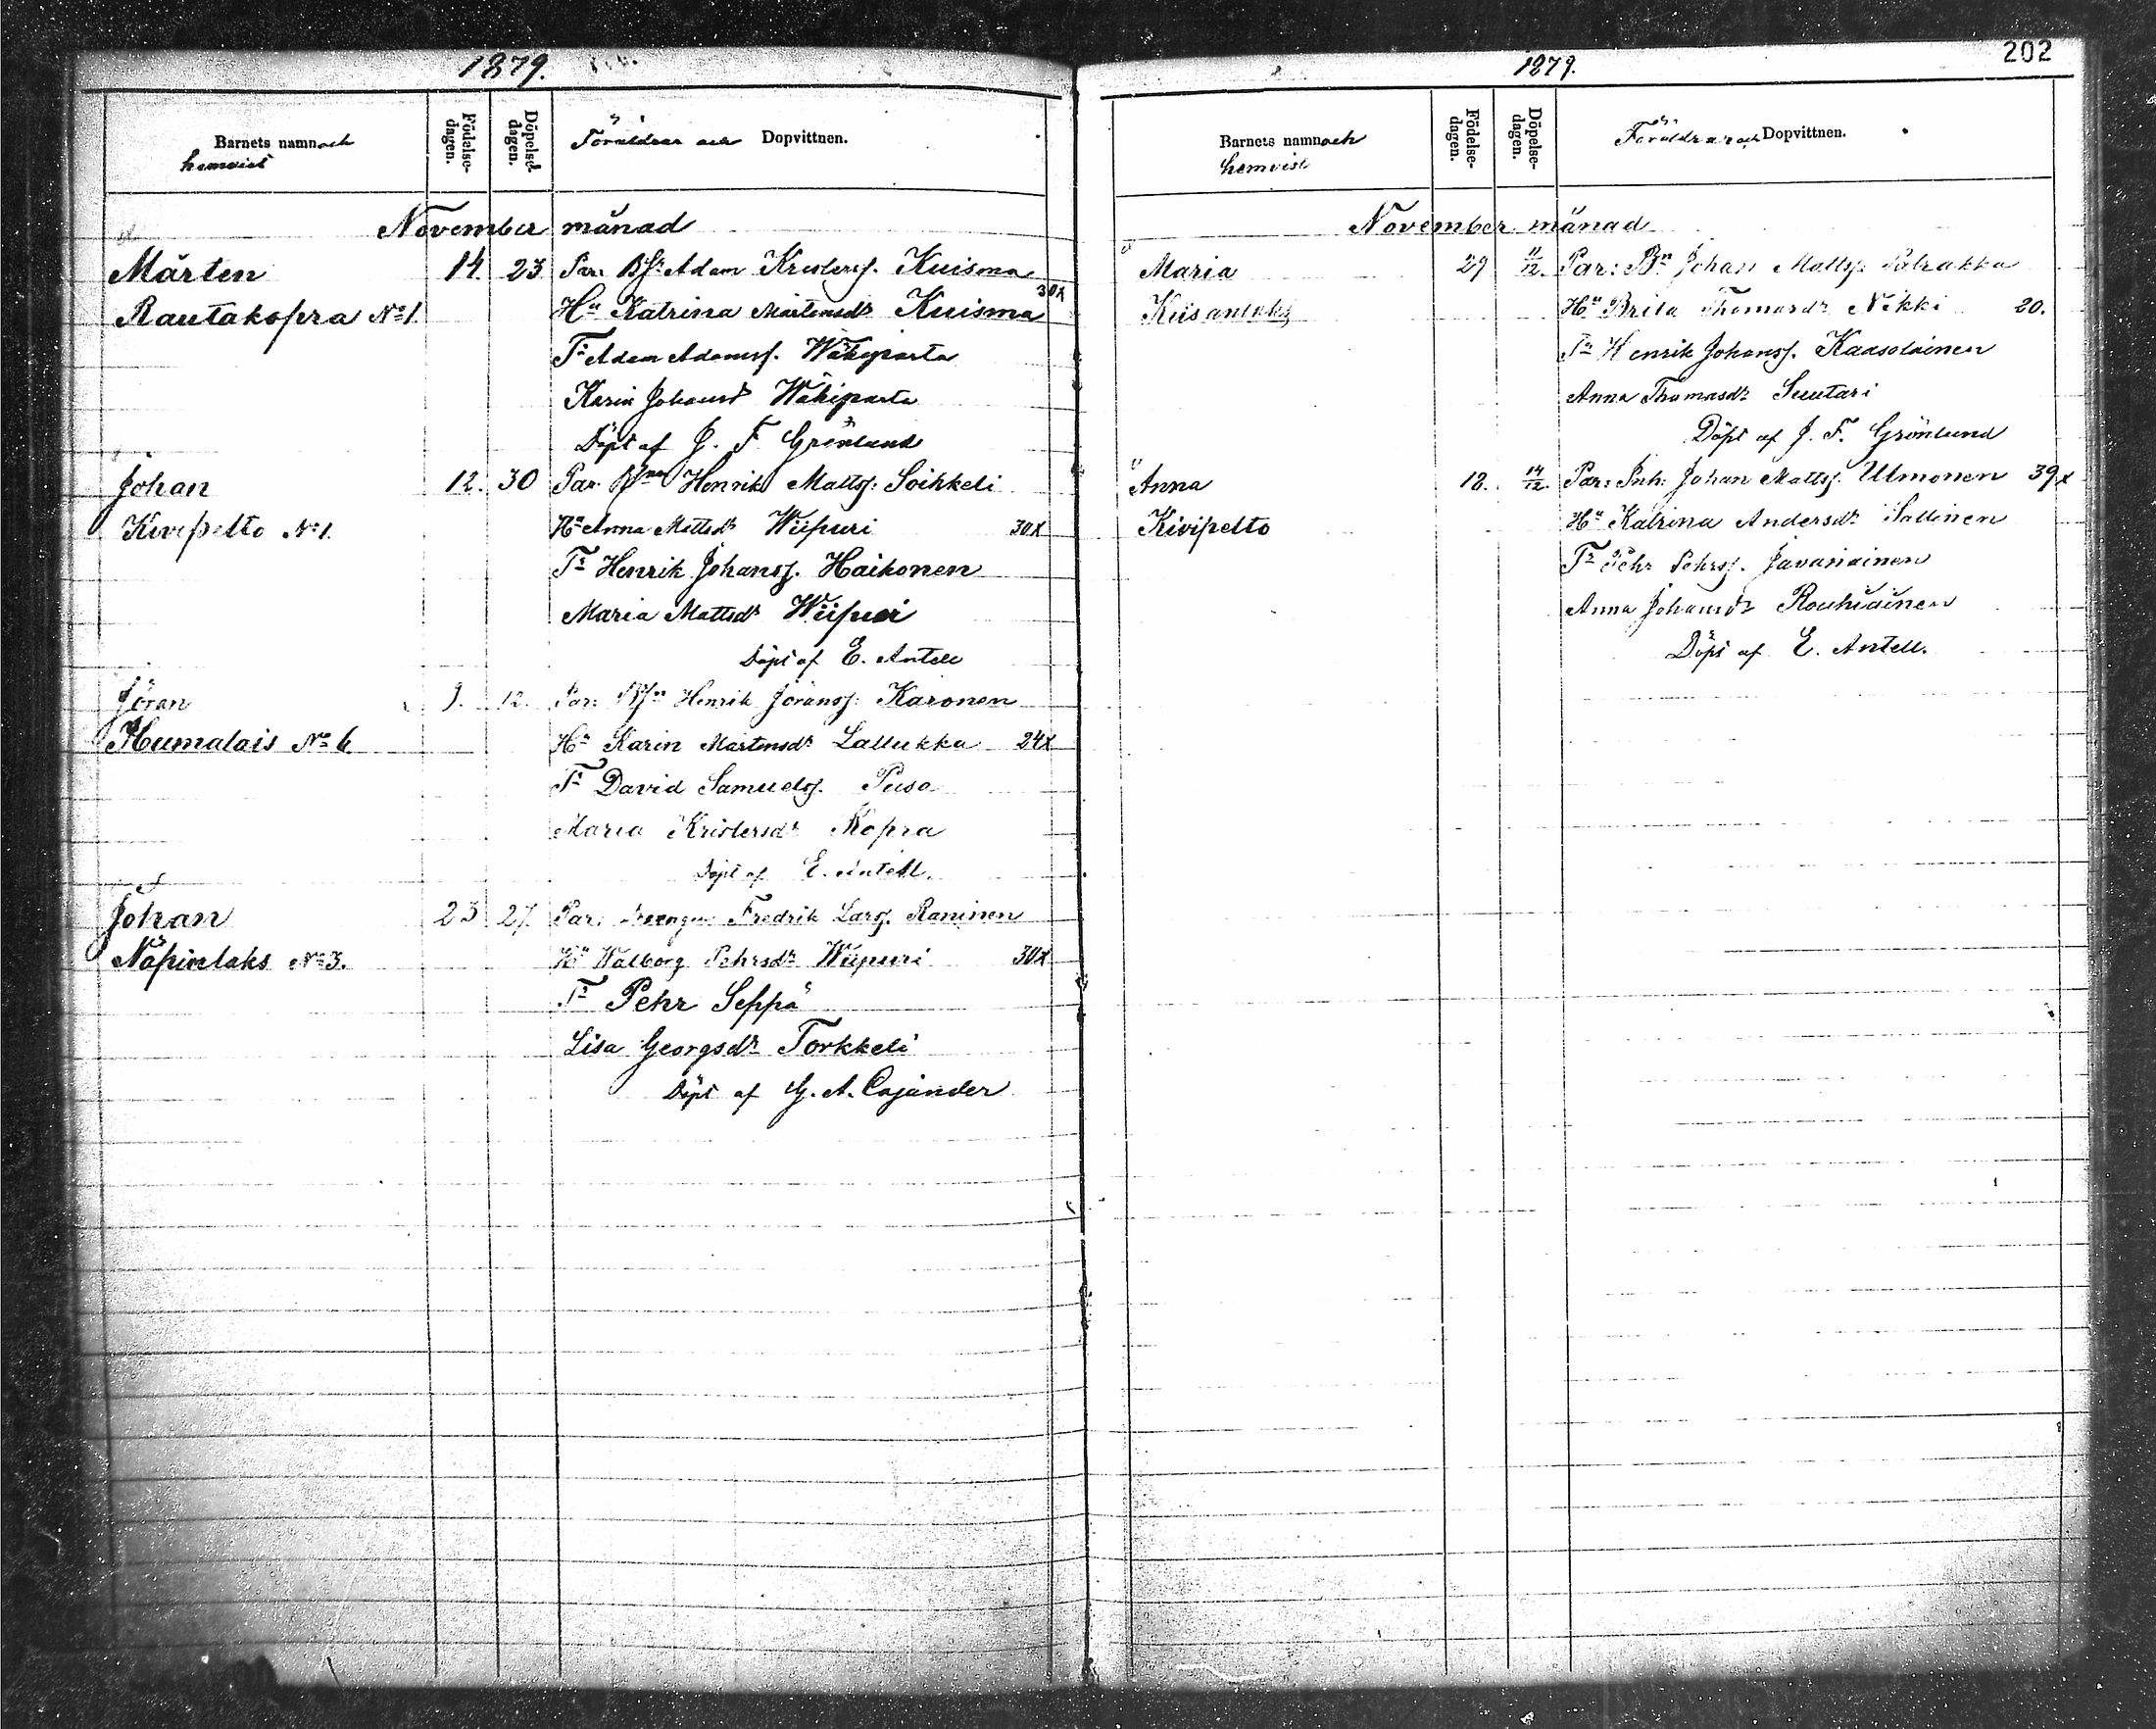 1879.
Barnets namn och hemvist
Födelsedagen.
Döpelsedagen.
Föräldrar och Dopvittnen.
November månad
Mårten 14. 23. Par: Adam Kristersf. Kuisma
Rautakopra No 1. Hu Katrina Mårtensdr Kuisma 30x
Tr Adam Adamsf. Wäkiparta
Karin Johansd Wäkiparta
Döpt af J. F. Grönlund
Johan 12. 30 Par. Henrik Mattsf. Soikkeli
Kivipelto No 1. Hu Anna Mattsdr Wiipuri 30x
Tr Henrik Johansf. Haikonen
Maria Mattsdr Wiipuri
Döpt af E. Antell
Jöran 9. 12. Par: Henrik Jöransf. Karonen
Humalais No 6 Hu Karin Mårtensdr Lallukka 24x
Tr David Samuelsf. Pusa
Maria Kristersdr Kopra
Döpt af E. Antell.
Johan 23 27. Par: Fredrik Larsf. Raninen
Näpinlaks No 3. Hu Walborg Pehrsdr Wiipuri 30x
Tr Pehr Seppä
Lisa Georgsdr Torkkeli
Döpt af G. A. Cajander
202
1879.
Barnets namn och hemvist
Födelsedagen.
Döpelsedagen.
Föräldrar och Dopvittnen.
November månad
Maria 29 11/12. Par: Bn Johan Mattsf. Patrakka
Hu Brita Thomasdr Nikki 20.
Tr Henrik Johansf. Kaasolainen
Anna Thomasdr Suutari
Döpt af J. F. Grönlund
Anna 18. 14/12. Par: Inh: Johan Mattsf. Ulmonen 39x
Kivipelto Hu Katrina Andersdr Sallinen
Tr Pehr Pehrsf. Javanainen
Anna Johansdr Rouhiainen
Döpt af E. Antell.